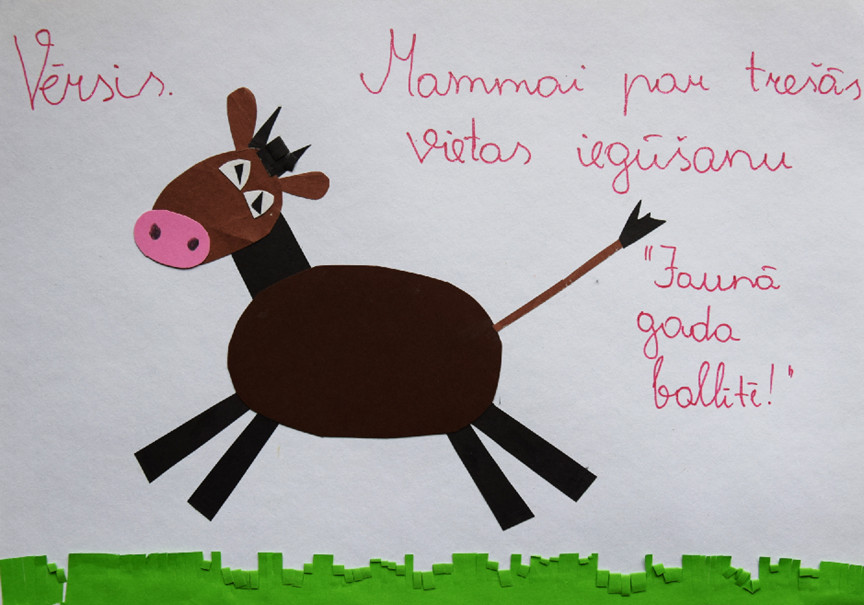 Vērsis.
Mammai par trešās
vietas iegūšanu
"Jaunā
gada
ballītē!"